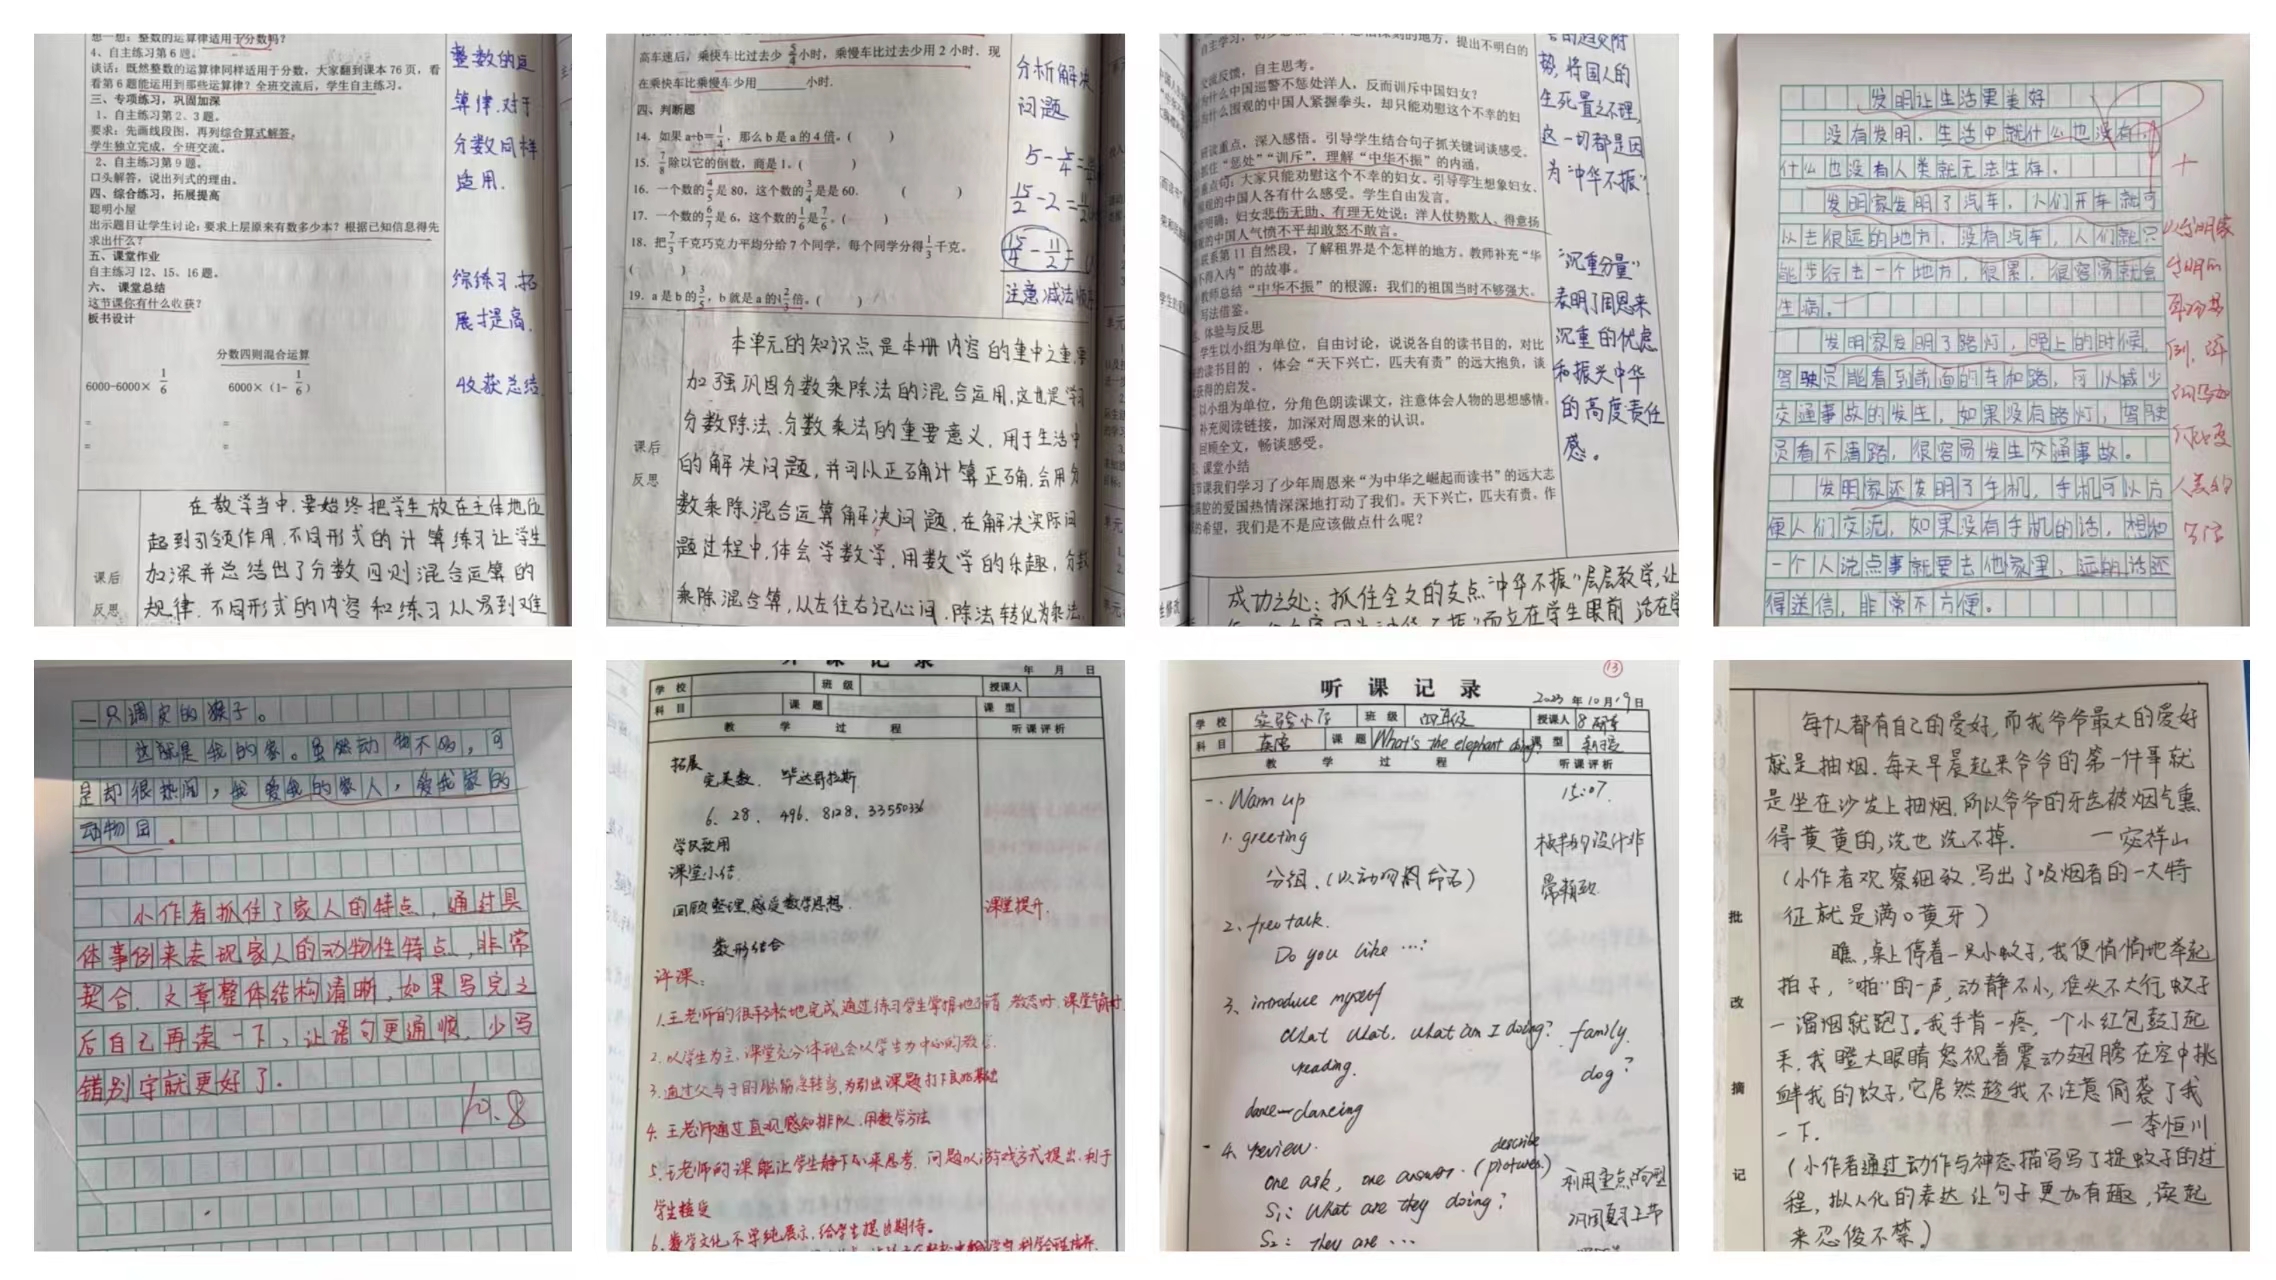 想一想：整数的运算律适用于分数吗？
4、自主练习第6题。
谈话：既然整数的运算律同样适用于分数，大家翻到课本76页，看
看第6题能运用到那些运算律？全班交流后，学生自主练习。
三、专项练习，巩固加深
1、自主练习第2、3题。
要求：先画线段图，再列综合算式解答。
学生独立完成，全班交流。
2、自主练习第9题。
口头解答，说出列式的理由。
四、综合练习，拓展提高
聪明小屋
出示题目让学生讨论：要求上层原来有数多少本？根据已知信息得先
求出什么？
五、课堂作业
自主练习12、15、16题。
六、课堂总结
这节课你有什么收获？
板书设计
分数四则混合运算
6000-6000×1/6 6000×（1-1/6）
= =
= =
整数的运
算律.对于
分数同样
适用.
综练习.拓
展才提高.
收获总结
课后
反思
在教学当中.要始终把学生放在主体地位
起到引领作用.不同形式的计算练习让学生
加深并总结出了分数四则混合运算的
规律.不同形式的内容和练习从易到难
高车速后，乘快车比过去少5/4小时，乘慢车比过去少用2小时.现
在乘快车比乘慢车少用______小时.
四、判断题
14. 如果a÷b=1/4，那么b是a的4倍。（ ）
15. 7/8除以它的倒数，商是1。（ ）
16. 一个数的4/5是80，这个数的3/4是是60. （ ）
17. 一个数的6/7是6，这个数的1/6是7/6。（ ）
18. 把7/3千克巧克力平均分给7个同学，每个同学分得1/3千克。
（ ）
19. a是b的3/5，b就是a的
倍。（ ）
分析解决
问题
注意减法顺序
课后
反思
本单元的知识点是本册内容的重中之重,要
加强巩固分数乘除法的混合运用,这也是学习
分数除法.分数乘法的重要意义，用于生活中
的解决问题,并可以正确计算正确,会用分
数乘除混合运算解决问题.在解决实际问
题过程中,体会学数学,用数学的乐趣，分数
乘除混合算,从左往右记心间.除法转化为乘法.
交流反馈，自主思考。
为什么中国巡警不惩处洋人，反而训斥中国妇女？
为什么围观的中国人紧握拳头，却只能劝慰这个不幸的妇
研读重点，深入感悟。引导学生结合句子抓关键词谈感受。
抓住“惩处”“训斥”，理解“中华不振”的内涵。
重点句：大家只能劝慰这个不幸的妇女。引导学生想象妇女、
围观的中国人各有什么感受。学生自由发言。
明确：妇女悲伤无助、有理无处说；洋人仗势欺人、得意扬
的中国人气愤不平却敢怒不敢言。
联系第11自然段，了解租界是个怎样的地方。教师补充“华
不得入内”的故事。
教师总结“中华不振”的根源：我们的祖国当时不够强大。
写法借鉴。
体验与反思
学生以小组为单位，自由讨论，说说各自的读书目的，对比
的读书目的，体会“天下兴亡，匹夫有责”的远大抱负，谈
获得的启发。
以小组为单位，分角色朗读课文，注意体会人物的思想感情。
补充阅读链接，加深对周恩来的认识。
回顾全文，畅谈感受。
课堂小结
节课我们学习了少年周恩来“为中华之崛起而读书”的远大志
满腔的爱国热情深深地打动了我们。天下兴亡，匹夫有责，作
的希望，我们是不是应该做点什么呢？
势,将国人的
生死置之不理,
这一切都是因
为“中华不振”
“沉重分量”
表明了周恩来
沉重的忧虑
和振兴中华
的高度责任
感。
成功之处：抓住全文的支点“中华不振”层层教学,让
发明让生活更美好
没有发明，生活中就什么也没有，
什么也没有人类就无法生存。
发明家发明了汽车，人们开车就可
以去很远的地方，没有汽车，人们就只
能步行去一个地方，很累，很容易就会
生病。
发明家发明了路灯，晚上的时候，
驾驶员能看到前面的车和路，可以减少
交通事故的发生，如果没有路灯，驾驶
员看不清路，很容易发生交通事故。
发明家还发明了手机，手机可以方
便人们交流，如果没有手机的话，想和
一个人说点事就要去他家里，远的话还
得送信，非常不方便。
一只调皮的猴子。
这就是我的家。虽然动物不多，可
是却很热闹，我爱我的家人，爱我家的
动物园.
小作者抓住了家人的特点，通过具
体事例来表现家人的动物性特点，非常
契合.文章整体结构清晰，如果写完之
后自己再读一下，让语句更通顺，少写
错别字就更好了.
10.8
听课记录
年 月 日
学校 班级 授课人
科目 课题 课型
教 学 过 程 听课评析
拓展
完美数. 毕达哥拉斯.
6、28、496、8128、33550336
学以致用
课堂小结.
回顾整理,感受数学思想.
课堂提升.
数形结合
评课：
2.以学生为主,课堂充分体现会以学生为中心的教学.
4.王老师通过直观感知排队.用数学方法
5.王老师的课能让学生静下心来思考,问题以游戏方式提出,利于
学生接受
6.数学文化不单纯展示,给学生提出期待。
⑬
听课记录
2023年10月19日
学校 实验小学 班级 四年级 授课人
科目 英语 课题 What's the elephant doing? 课型 新授
教 学 过 程 听课评析
一. Warm up
15:07
1. greeting
板书的设计非
常精致
分组.(以动物园命名)
2. free talk.
Do you like ...?
3. introduce myself
What What. What am I doing? family.
reading. dog?
dance—dancing
4. review. describe
one ask, one answer. (pictures)
利用重点句型
S1: What are they doing?
S2: They are ...
批
改
摘
记
每个人都有自己的爱好,而我爷爷最大的爱好
就是抽烟.每天早晨起来爷爷的第一件事就
是坐在沙发上抽烟.所以爷爷的牙齿被烟气熏
得黄黄的,洗也洗不掉.
(小作者观察细致.写出了吸烟者的一大特
征就是满口黄牙)
瞧,桌上停着一只小蚊子,我便悄悄地举起
拍子，“啪”的一声,动静不小,准头不大行,蚊子
一溜烟就跑了。我手肘一疼，一个小红包鼓了起
来.我瞪大眼睛怒视着震动翅膀在空中挑
衅我的蚊子,它居然趁我不注意偷袭了我
一下. 一李恒川
(小作者通过动作与神态描写写了捉蚊子的过
程，拟人化的表达让句子更加有趣，读起
来忍俊不禁.)